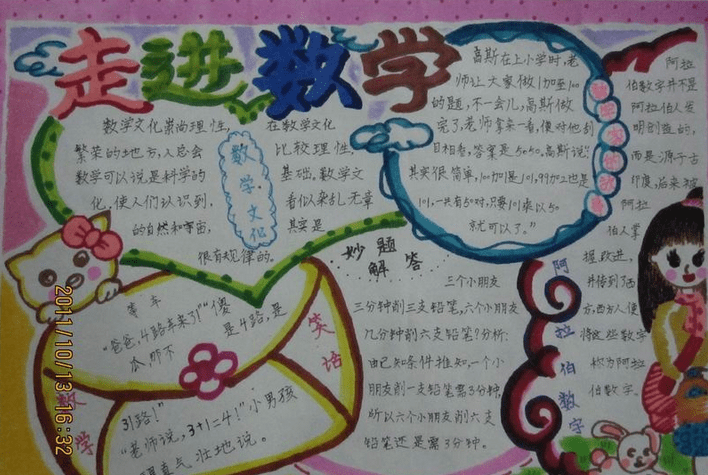 走进数学
数学文化崇尚理性,
繁荣的地方,人总会
数学可以说是科学的
化,使人们认识到,
的自然和宇宙,
很有规律的。
在数学文化
比较理性,
基础。数学文
看似杂乱无章
其实是
数学·文化
高斯在上小学时,老
师让大家做1加至100
的题,不一会儿,高斯做
完了,老师拿来一看,便对他刮
目相看,答案是5050。高斯说:"
其实很简单,100加1是101,99加2也是
101,一共有50对,只要101乘以50
就可以了。"
阿拉
伯数字并不是
阿拉伯人发
明创造的,
而是源于古
印度,后来被
阿拉
伯人掌
握、改进,
并传到了西
方,西方人便
将这些数字
称为阿拉
伯数字
阿拉伯数字
妙题
解答
三个小朋友
三分钟削三支铅笔,六个小朋友
几分钟削六支铅笔?分析:
由已知条件推知,一个小
朋友削一支铅笔需3分钟,
所以六个小朋友削六支
铅笔还是需3分钟。
等车
"爸爸,4路车来了!""傻
瓜,那不
是4路,是
31路!"
"老师说,3+1=4!"小男孩
理直气壮地说。
数学
笑话
2011/10/13 16:32